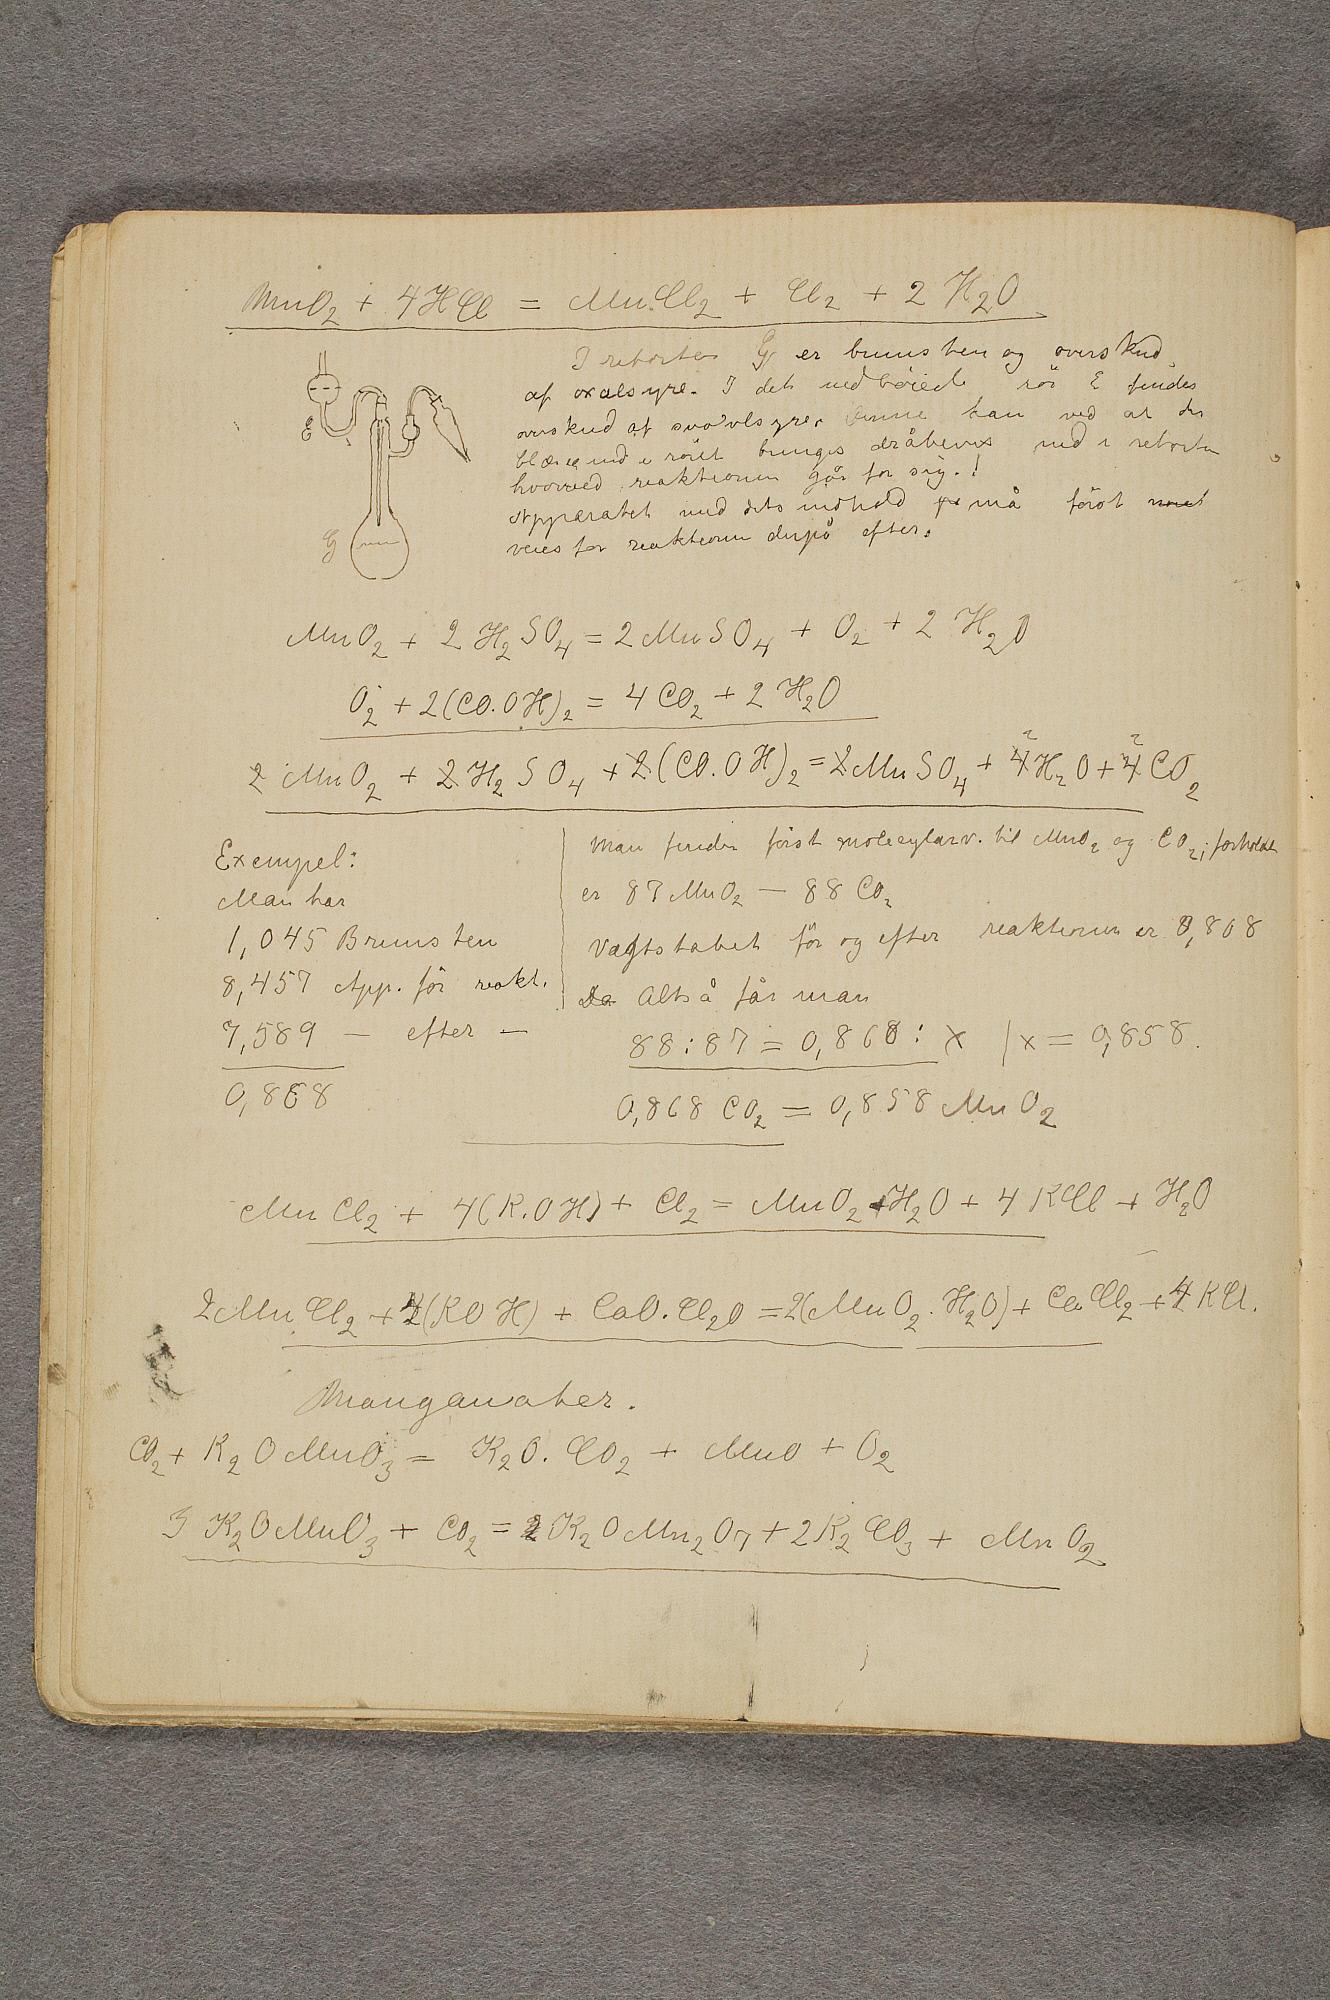 MnO₂ + 4HCl = MnCl₂ + Cl₂ + 2 H₂O
I retorten G er brunsten og overskud
af oxalsyre. I det nedböiede rör E findes
overskud af svovlsyre. Denne kan ved at der
blæses ned i röret bringes dråbevis ned i retorten
hvorved reaktionen går for sig.!
Apparatet med dets indhold må först
veies för reaktionen derpå efter.
E
G
MnO₂ + 2 H₂SO₄ = 2 MnSO₄ + O₂ + 2 H₂O
O₂ + 2(CO.OH)₂ = 4CO₂ + 2 H₂O
2 MnO₂ + 2 H₂SO₄ + 2(CO.OH)₂ = 2MnSO₄ + 4 2 H₂O + 4 2 CO₂
Exempel:
Man har
1,045 Brunsten
8,457 App. för reakt.
7,589 — efter —
0,868
Man finder först molecylarv. til MnO₂ og CO₂; forholdet
er 87 MnO₂ — 88 CO₂
Vægtstabet för og efter reaktionen er 0,868
Da Altså får man
88 : 87 = 0,868 : x | x = 0,858.
0,868 CO₂ = 0,858 MnO₂
MnCl₂ + 4(K.OH) + Cl₂ = MnO₂ + H₂O + 4 KCl + H₂O
2MnCl₂ + 4(KOH) + CaO.Cl₂O = 2(MnO₂.H₂O) + CaCl₂ + 4 KCl.
Manganater.
CO₂ + K₂OMnO₃ = K₂O.CO₂ + MnO + O₂
3 K₂OMnO₃ + CO₂ = 2 K₂OMn₂O₇ + 2K₂CO₃ + MnO₂